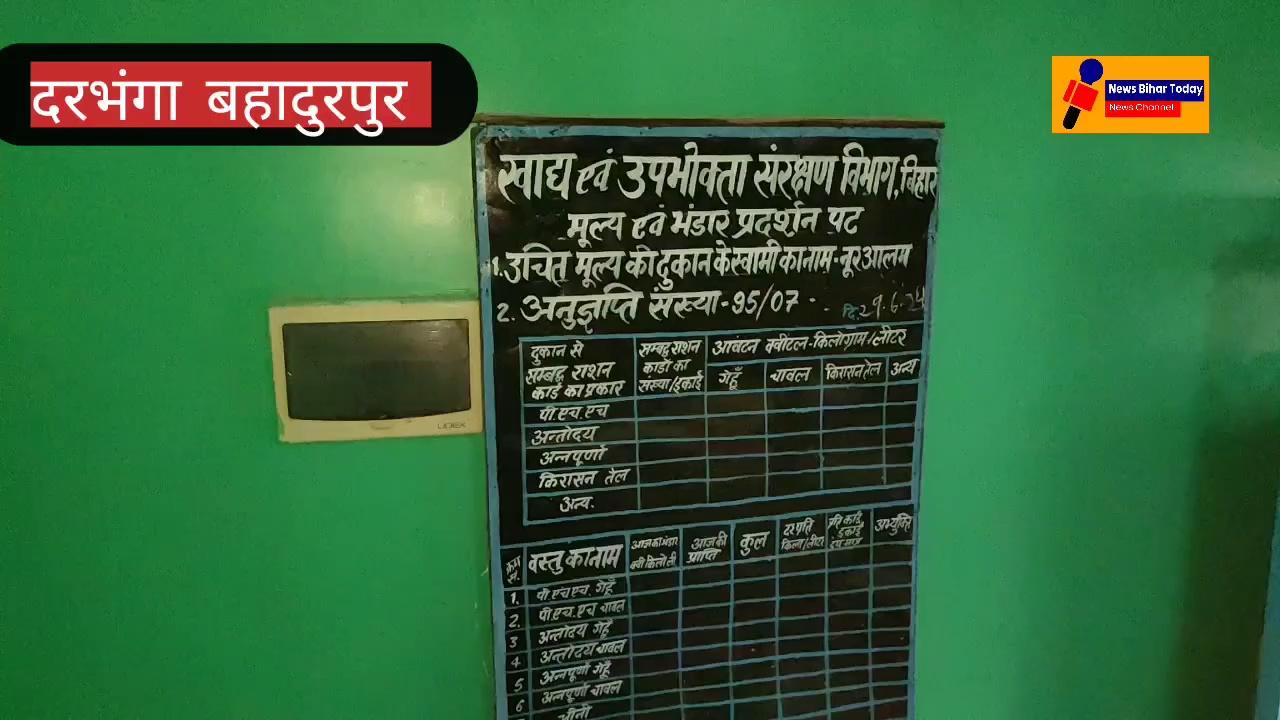 दरभंगा बहादुरपुर
News Bihar Today
News Channel
खाद्य एवं उपभोक्ता संरक्षण विभाग, बिहार
मूल्य एवं भंडार प्रदर्शन पट
1. उचित मूल्य की दुकान के स्वामी का नाम-नूर आलम
2. अनुज्ञप्ति संख्या-95/07 दि. 29.6.24
दुकान से सम्बद्ध राशन कार्ड का प्रकार
सम्बद्ध राशन कार्डो का संख्या/इकाई
आवंटन क्वींटल-किलोग्राम/लीटर
गेहूँ चावल किरासन तेल अन्य
पी.एच.एच
अन्तोदय
अन्नपूर्णा
किरासन तेल
अन्य.
क्रम सं. वस्तु का नाम
आज का भंडार
आज की प्राप्ति
कुल
दर प्रति किलो/लीटर
प्रति कार्ड इकाई
अभ्युक्ति
1. पी एच एच. गेहूँ
2. पी.एच.एच चावल
3 अन्तोदय गेहूँ
4 अन्तोदय चावल
5 अन्नपूर्णा गेहूँ
6 अन्नपूर्णा चावल
चीनी
UDEK